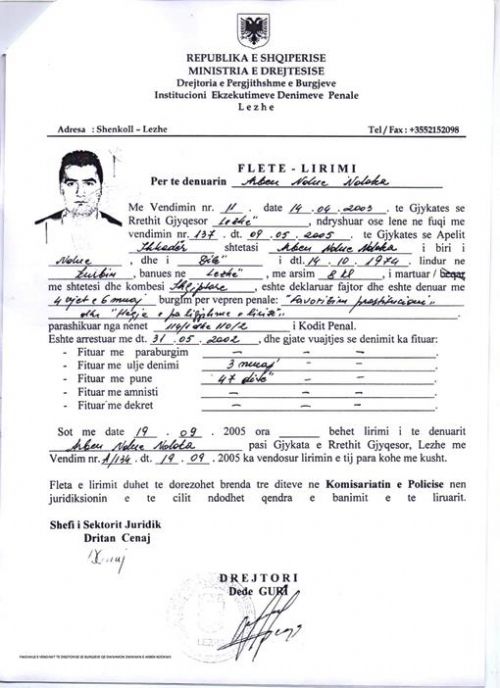 REPUBLIKA E SHQIPERISE
MINISTRIA E DREJTESISE
Drejtoria e Pergjithshme e Burgjeve
Institucioni Ekzekutimeve Denimeve Penale
Lezhe
Adresa : Shenkoll - Lezhe Tel / Fax : +3552152098
FLETE - LIRIMI
Per te denuarin Arben Ndue Ndoka
Me Vendimin nr. 11 . date 14 . 04 . 2003 , te Gjykates se
Rrethit Gjyqesor Lezhe" , ndryshuar ose lene ne fuqi me
vendimin nr. 137 . dt. 09 . 05 . 2005 . te Gjykates se Apelit
Shkoder shtetasi Arben Ndue Ndoka i biri i
Ndue , dhe i Dile" i dtl. 14 . 10 . 1974 , lindur ne
Zurbin , banues ne Lezhe" , me arsim 8 kl , i martuar / beqar
me shtetesi dhe kombesi Shqiptare , eshte deklaruar fajtor dhe eshte denuar me
4 vjet e 6 muaj burgim per vepren penale: "Favorizim prostitucioni"
dhe "Heqje e paligjshme e lirise"
parashikuar nga nenet 114/1 dhe 110/2 i Kodit Penal.
Eshte arrestuar me dt. 31 . 05 . 2002 , dhe gjate vuajtjes se denimit ka fituar:
- Fituar me paraburgim – – –
- Fituar me ulje denimi 3 muaj –
- Fituar me pune 47 dite –
- Fituar me amnisti – – –
- Fituar me dekret – – –
Sot me date 19 . 09 . 2005 ora behet lirimi i te denuarit
Arben Ndue Ndoka pasi Gjykata e Rrethit Gjyqesor, Lezhe me
Vendim nr. A/134 . dt. 19 . 09 . 2005 ka vendosur lirimin e tij para kohe me kusht.
Fleta e lirimit duhet te dorezohet brenda tre diteve ne Komisariatin e Policise nen
juridiksionin e te cilit ndodhet qendra e banimit e te liruarit.
Shefi i Sektorit Juridik
Dritan Cenaj
DREJTORI
Dede GURI